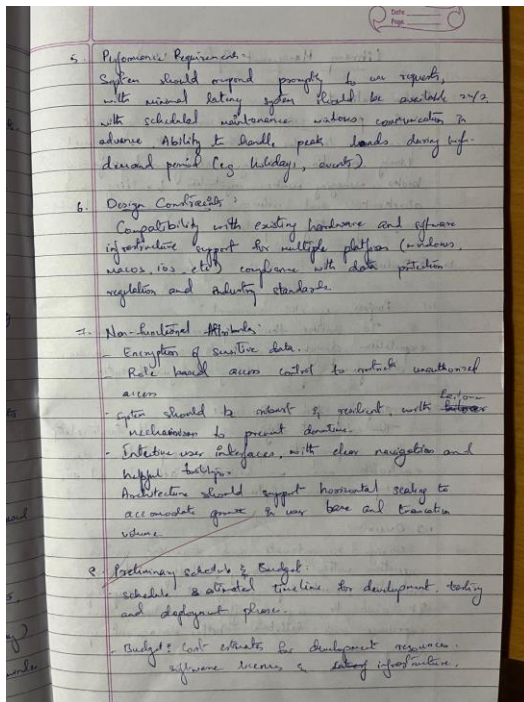 Date
Page
5. Performance Requirements:-
System should respond promptly to user requests,
with minimal latency system should be available 24/7
with scheduled maintenance windows communication in
advance Ability to handle peak loads during high-
demand period (eg holidays, events)
6. Design Constraints:
Compatibility with existing hardware and software
infrastructure support for multiple platform (windows,
macos, ios, etc) compliance with data protection
regulation and industry standards.
7. Non-functional Attributes:
- Encryption of sensitive data.
- Role based access control to unauthorised
access
- System should be robust & resilient, with failover
mechanism to prevent downtime.
- Intuitive user interfaces, with clear navigation and
helpful
Architecture should support horizontal scaling to
accomodate in user base and
volume
Preliminary schedule & Budget:
- schedule estimated timeline for development, testing
and deployment phase.
- Budget: Cost estimates for development resources.
software licenses & infrastructure.